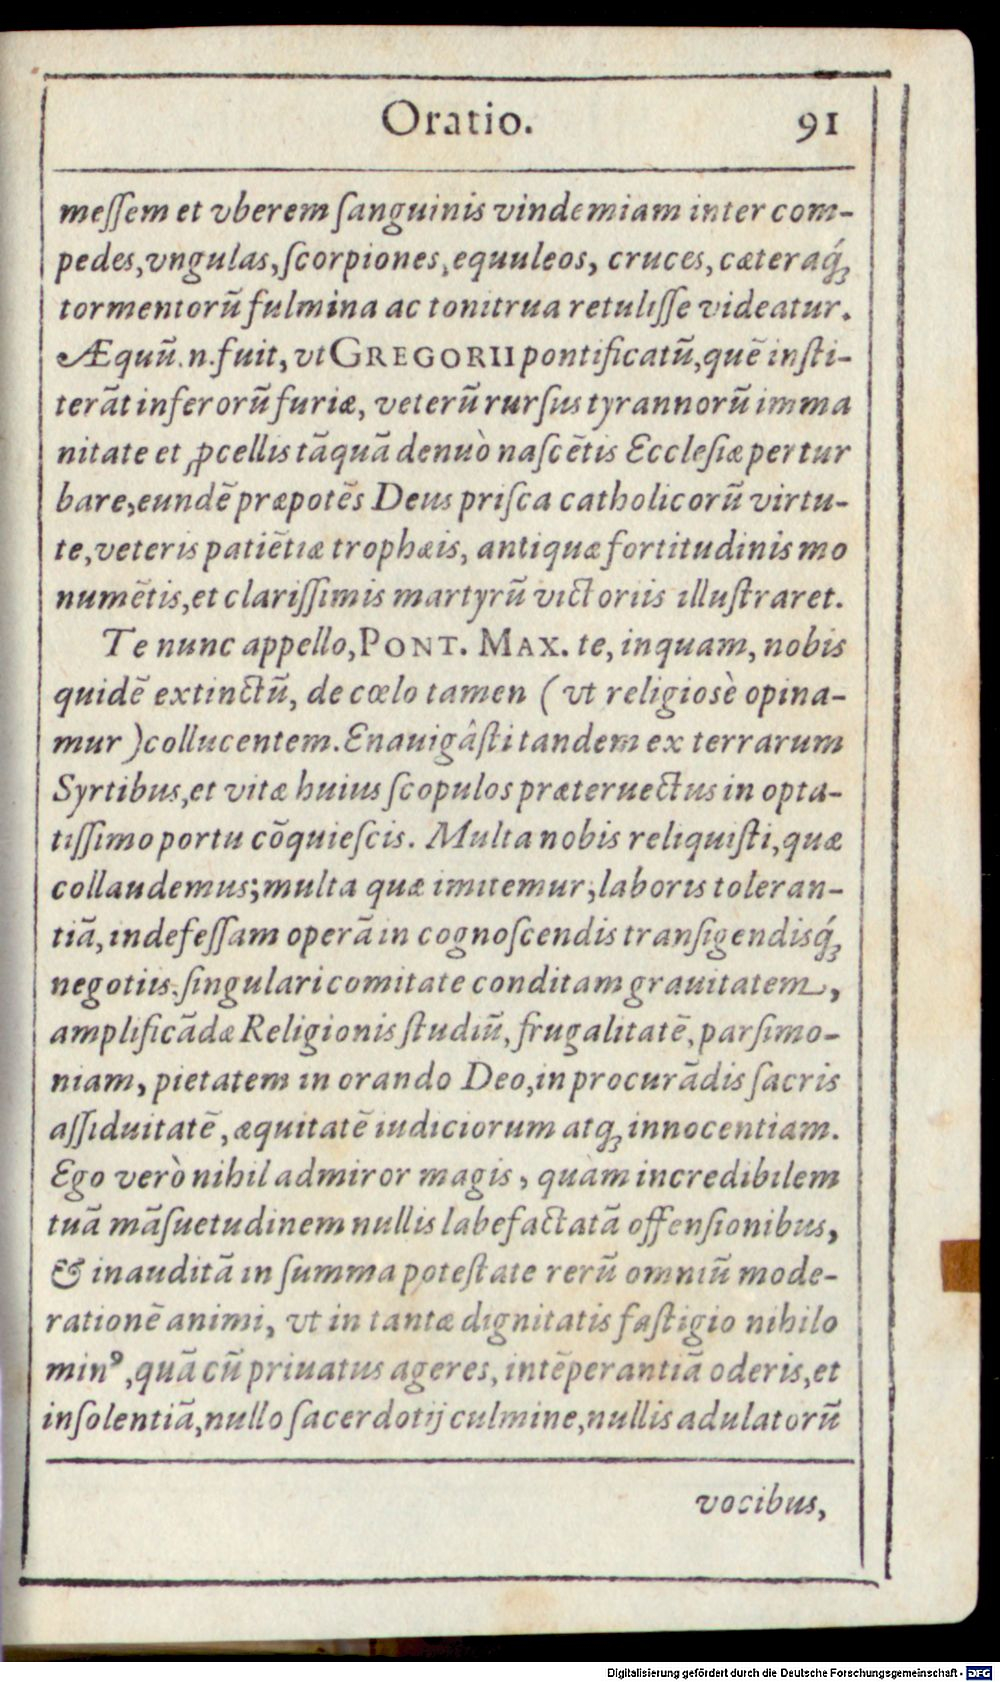 Oratio. 91
meſſem et vberem ſanguinis vindemiam inter com-
pedes, vngulas, ſcorpiones, equuleos, cruces, cæteraq́ꝫ
tormentorũ fulmina ac tonitrua retuliſſe videatur.
Æquũ.n.fuit, vt GREGORII pontificatũ, quẽ inſti-
terãt inferorũ furiæ, veterũ rurſus tyrannorũ imma
nitate et ꝓcellis tãquã denuò naſcẽtis Eccleſiæ pertur
bare, eundẽ præpotẽs Deus priſca catholicorũ virtu-
te, veteris patiẽtiæ trophæis, antiquæ fortitudinis mo
numẽtis, et clariſſimis martyrũ victoriis illuſtraret.
Te nunc appello, PONT. MAX. te, inquam, nobis
quidẽ extinctũ, de cœlo tamen (vt religiosè opina-
mur) collucentem. Enauigâſti tandem ex terrarum
Syrtibus, et vitæ huius ſcopulos præteruectus in opta-
tiſſimo portu cõquieſcis. Multa nobis reliquiſti, quæ
collaudemus; multa quæ imitemur; laboris toleran-
tiã, indefeſſam operã in cognoſcendis tranſigendisq́ꝫ
negotiis. ſingulari comitate conditam grauitatem,
amplificãdæ Religionis ſtudiũ, frugalitatẽ, parſimo-
niam, pietatem in orando Deo, in procurãdis ſacris
aſſiduitatẽ, æquitatẽ iudiciorum atqꝫ innocentiam.
Ego verò nihil admiror magis, quàm incredibilem
tuã mãſuetudinem nullis labefactatã offenſionibus,
& inauditã in ſumma poteſtate rerũ omniũ mode-
rationẽ animi, vt in tantæ dignitatis faſtigio nihilo
minꝰ, quã cũ priuatus ageres, intẽperantiã oderis, et
inſolentiã, nullo ſacerdotij culmine, nullis adulatorũ
vocibus,
Digitalisierung gefördert durch die Deutsche Forschungsgemeinschaft - DFG